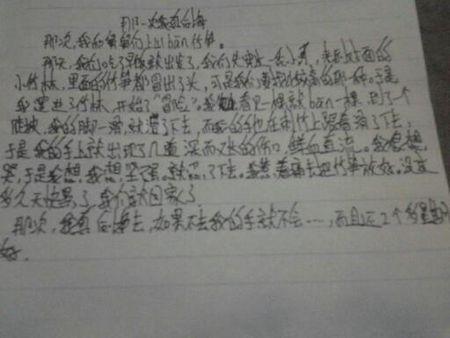 那一次我真后悔
那次,我和舅舅约上山ban竹笋。
那天,我们吃了早饭就出发了,我们先来到一条小,来到对面的
小竹林,里面的竹笋都冒出了头,可是我们要找比较高的那一种。于是
我进了竹林,开始了"冒险"。我看见一棵就ban一棵,到了一个
陡坡,我的脚一滑,就滑了下去,而我的手也在刺竹上
于是我的手上就出现了几道深而又长的伤口,鲜血直流。我很想
哭,于是我想,我想坚强。就忍了下去。我忍着痛去把竹笋放好。没过
多久天快黑了,我们就回家了
那次,我真后悔去,如果不去我的手就不会……,而且2个多星期
好。